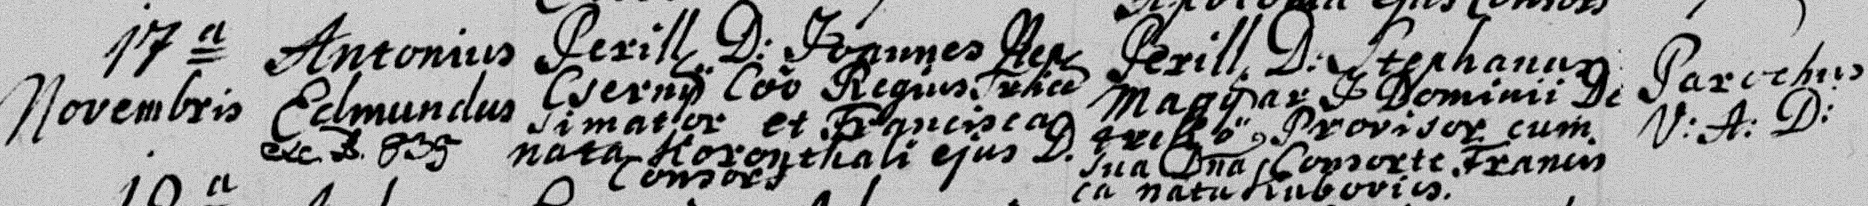 17ª
Novembris
Antonius
Edmundus
exc. B. 835
Perill. D: Joannes Nep.
Cserny Coo Regius Trice
simator et Francisca
nata Horonthali ejus D.
Consors
Perill. D: Stephanus
Magyar J Dominii De
Provisor cum
sua Dna Consorte Francis
ca nata Kubovics.
Parochus
V: A: D: